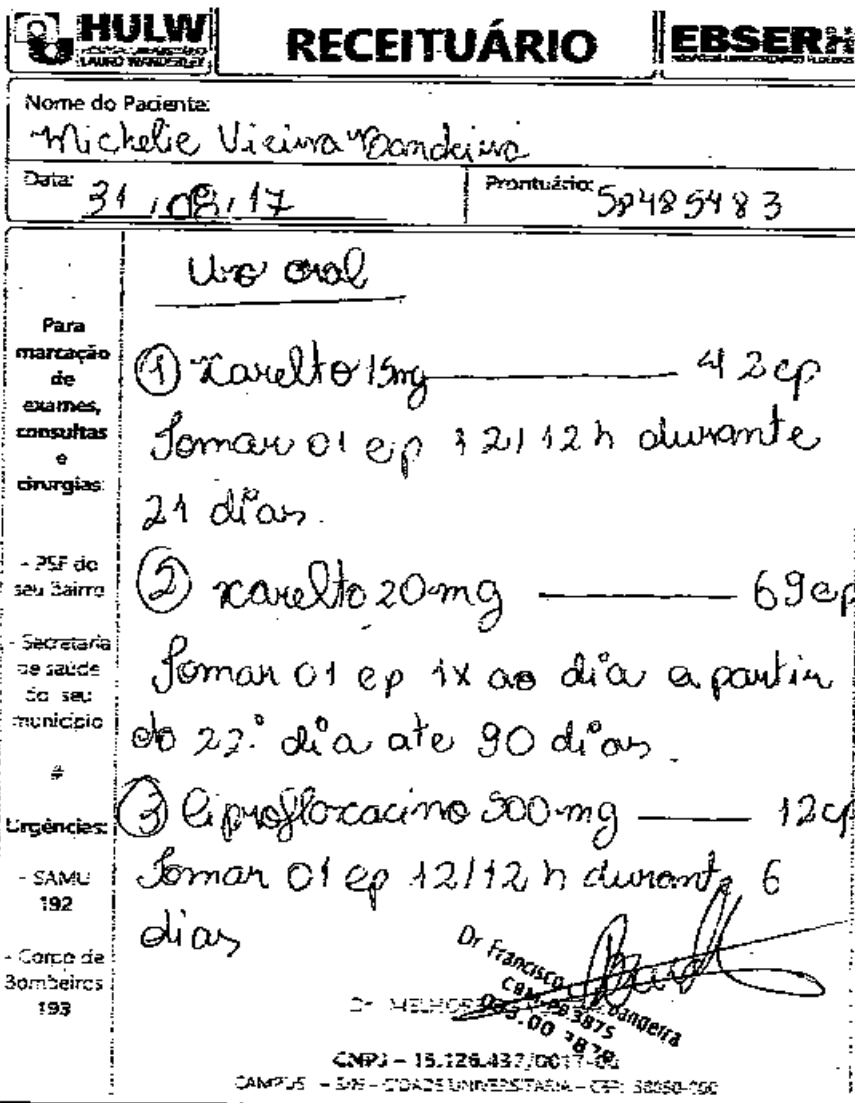 HULW
HOSPITAL UNIVERSITÁRIO
LAURO WANDERLEY
RECEITUÁRIO
EBSERH
Nome do Paciente:
Michelie Vieira Bandeira
Data: 31 / 08 / 17
Prontuário: 58485483
Uso oral
Para
marcação
de
exames,
consultas
e
cirurgias:
- PSF do
seu Bairro
- Secretaria
de saúde
do seu
município
#
Urgências:
- SAMU
192
- Corpo de
Bombeiros
193
① Xarelto 15mg 42 cp
Tomar 01 cp 12/12 h durante
21 dias.
② xarelto 20mg 69 cp
Tomar 01 cp 1x ao dia a partir
do 22º dia ate 90 dias.
③ Ciprofloxacino 500mg 12 cp
Tomar 01 cp 12/12 h durante 6
dias
Dr Francisco Bandeira
CRM-PB 3875
CNPJ - 15.126.437/0017-
CAMPUS - S/N - CIDADE UNIVERSITÁRIA - CEP: